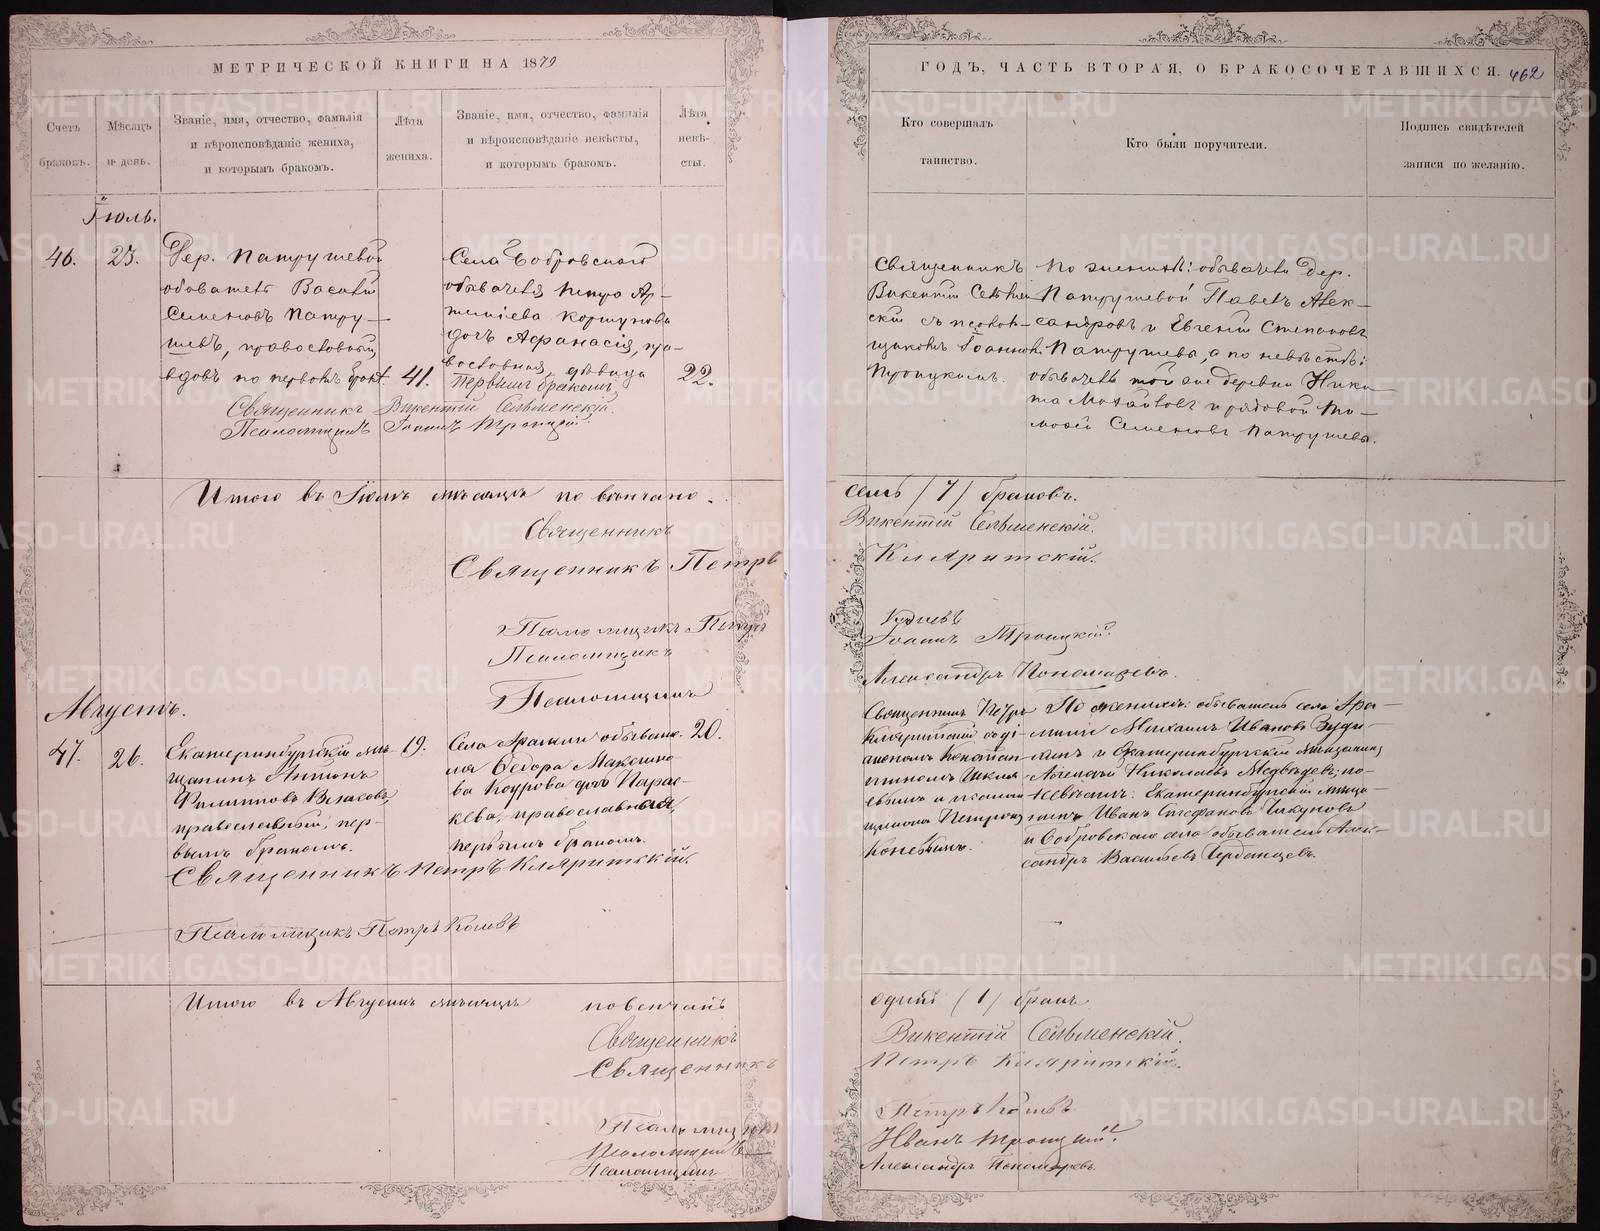 МЕТРИЧЕСКОЙ КНИГИ НА 1879
Счетъ браковъ.
Мѣсяцъ и день.
Званіе, имя, отчество, фамилія и вѣроисповѣданіе жениха, и которымъ бракомъ.
Лѣта жениха.
Званіе, имя, отчество, фамилія и вѣроисповѣданіе невѣсты, и которымъ бракомъ.
Лѣта невѣ-
сты.
Іюль.
46.
23.
Дер. Патрушевой
обыватель Василій
Семеновъ Патру-
шевъ, православный,
вдовъ по первомъ бракѣ.
41.
Села Бобровскаго
обывателя Петра Ар-
темьева Коршунова
дочь Афанасія, пра-
вославная, дѣвица
первымъ бракомъ.
22.
Священникъ Викентій Сельменскій.
Псаломщикъ Іоаннъ Троицкій.
Итого въ Іюлѣ мѣсяцѣ повѣнчано
Священникъ
Священникъ Петръ
Псаломщикъ Петръ
Псаломщикъ
Псаломщикъ
Августъ.
47.
26.
Екатеринбургскій мѣ-
щанинъ Антонъ
Филипповъ Власовъ,
православный, пер-
вымъ бракомъ.
19.
Села Арамили обывате-
ля Ѳедора Максимо-
ва дочь Парас-
кева, православная,
первымъ бракомъ.
20.
Священникъ Петръ Кляритскій.
Псаломщикъ Петръ Коневъ
Итого въ Августѣ мѣсяцѣ повенчанъ
Священникъ
Священникъ
Псаломщикъ
Псаломщикъ
Псаломщикъ
ГОДЪ, ЧАСТЬ ВТОРАЯ, О БРАКОСОЧЕТАВШИХСЯ.
462
Кто совершалъ таинство.
Кто были поручители.
Подпись свидѣтелей записи по желанію.
Священникъ
Викентій Сельмен-
скій съ псалом-
щикомъ Іоанномъ
Троицкимъ.
По женихѣ: обыватели дер.
Патрушевой Павелъ Алек-
сандровъ и Евгеній Степановъ
Патрушевы, а по невѣстѣ:
обыватель той же деревни Ники-
та Михайловъ и рядовой Ти-
мофей Семеновъ Патрушевы.
семь (7) браковъ.
Викентій Сельменскій.
Кляритскій.
Коневъ
Іоаннъ Троицкій.
Александръ Пономаревъ.
Священникъ Петръ
Кляритскій съ ді-
акономъ Констан-
тиномъ
и псалом-
щикомъ Петромъ
Коневымъ.
По женихѣ: обыватель села Ара-
мили Михаилъ Ивановъ
и Екатеринбургскій мѣщанинъ
Николаевъ Медвѣдевъ; по
невѣстѣ: Екатеринбургскій мѣща-
нинъ Иванъ Стефановъ
и Бобровскаго села обыватель Алек-
сандръ Васильевъ
одинъ (1) бракъ
Викентій Сельменскій.
Петръ Кляритскій.
Петръ Коневъ
Иванъ Троицкій.
Александръ Пономаревъ
METRIKI.GASO-URAL.RU